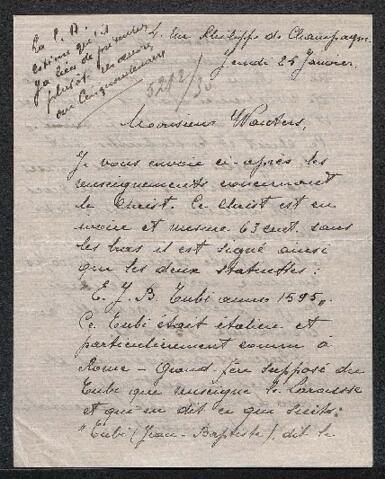 La S. B.
estime qu'il
y a lieu de
plutôt
au Cinquantenaire
5212/30
4. Rue Philippe de Champagne
Jeudi 25 Janvier.
Monsieur Wauters,
Je vous envoie ci-après les
renseignements concernant
le Christ. Ce Christ est en
ivoire et mesure 63 cent. sans
les bras il est signé ainsi
que les deux statuettes :
E. J. B. Tubi anno 1595.
Ce Tubi était italien et
particulièrement connu à
Rome - Quand
Tubi que renseigne le Larousse
et qui en dit ce qui suit :
"Tubi (Jean-Baptiste) dit le